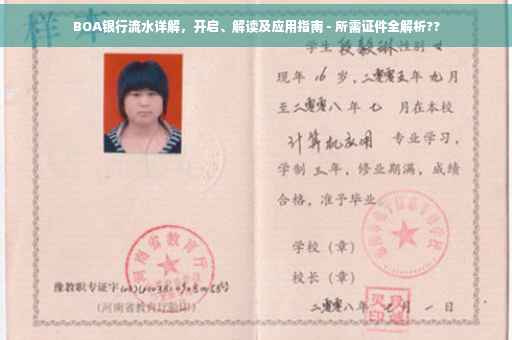 BOA银行流水详解，开启、解读及应用指南 - 所需证件全解析??
样本
学生段毅琳性别女
现年16岁，二零零五年九月
至二零零八年七月在本校
计算机应用 专业学习，
学制三年，修业期满，成绩
合格，准予毕业。
学校（章）
校长（章）
二零零八年 月一日
河南省教育厅
豫教职专证字
（河南省教育厅验印）